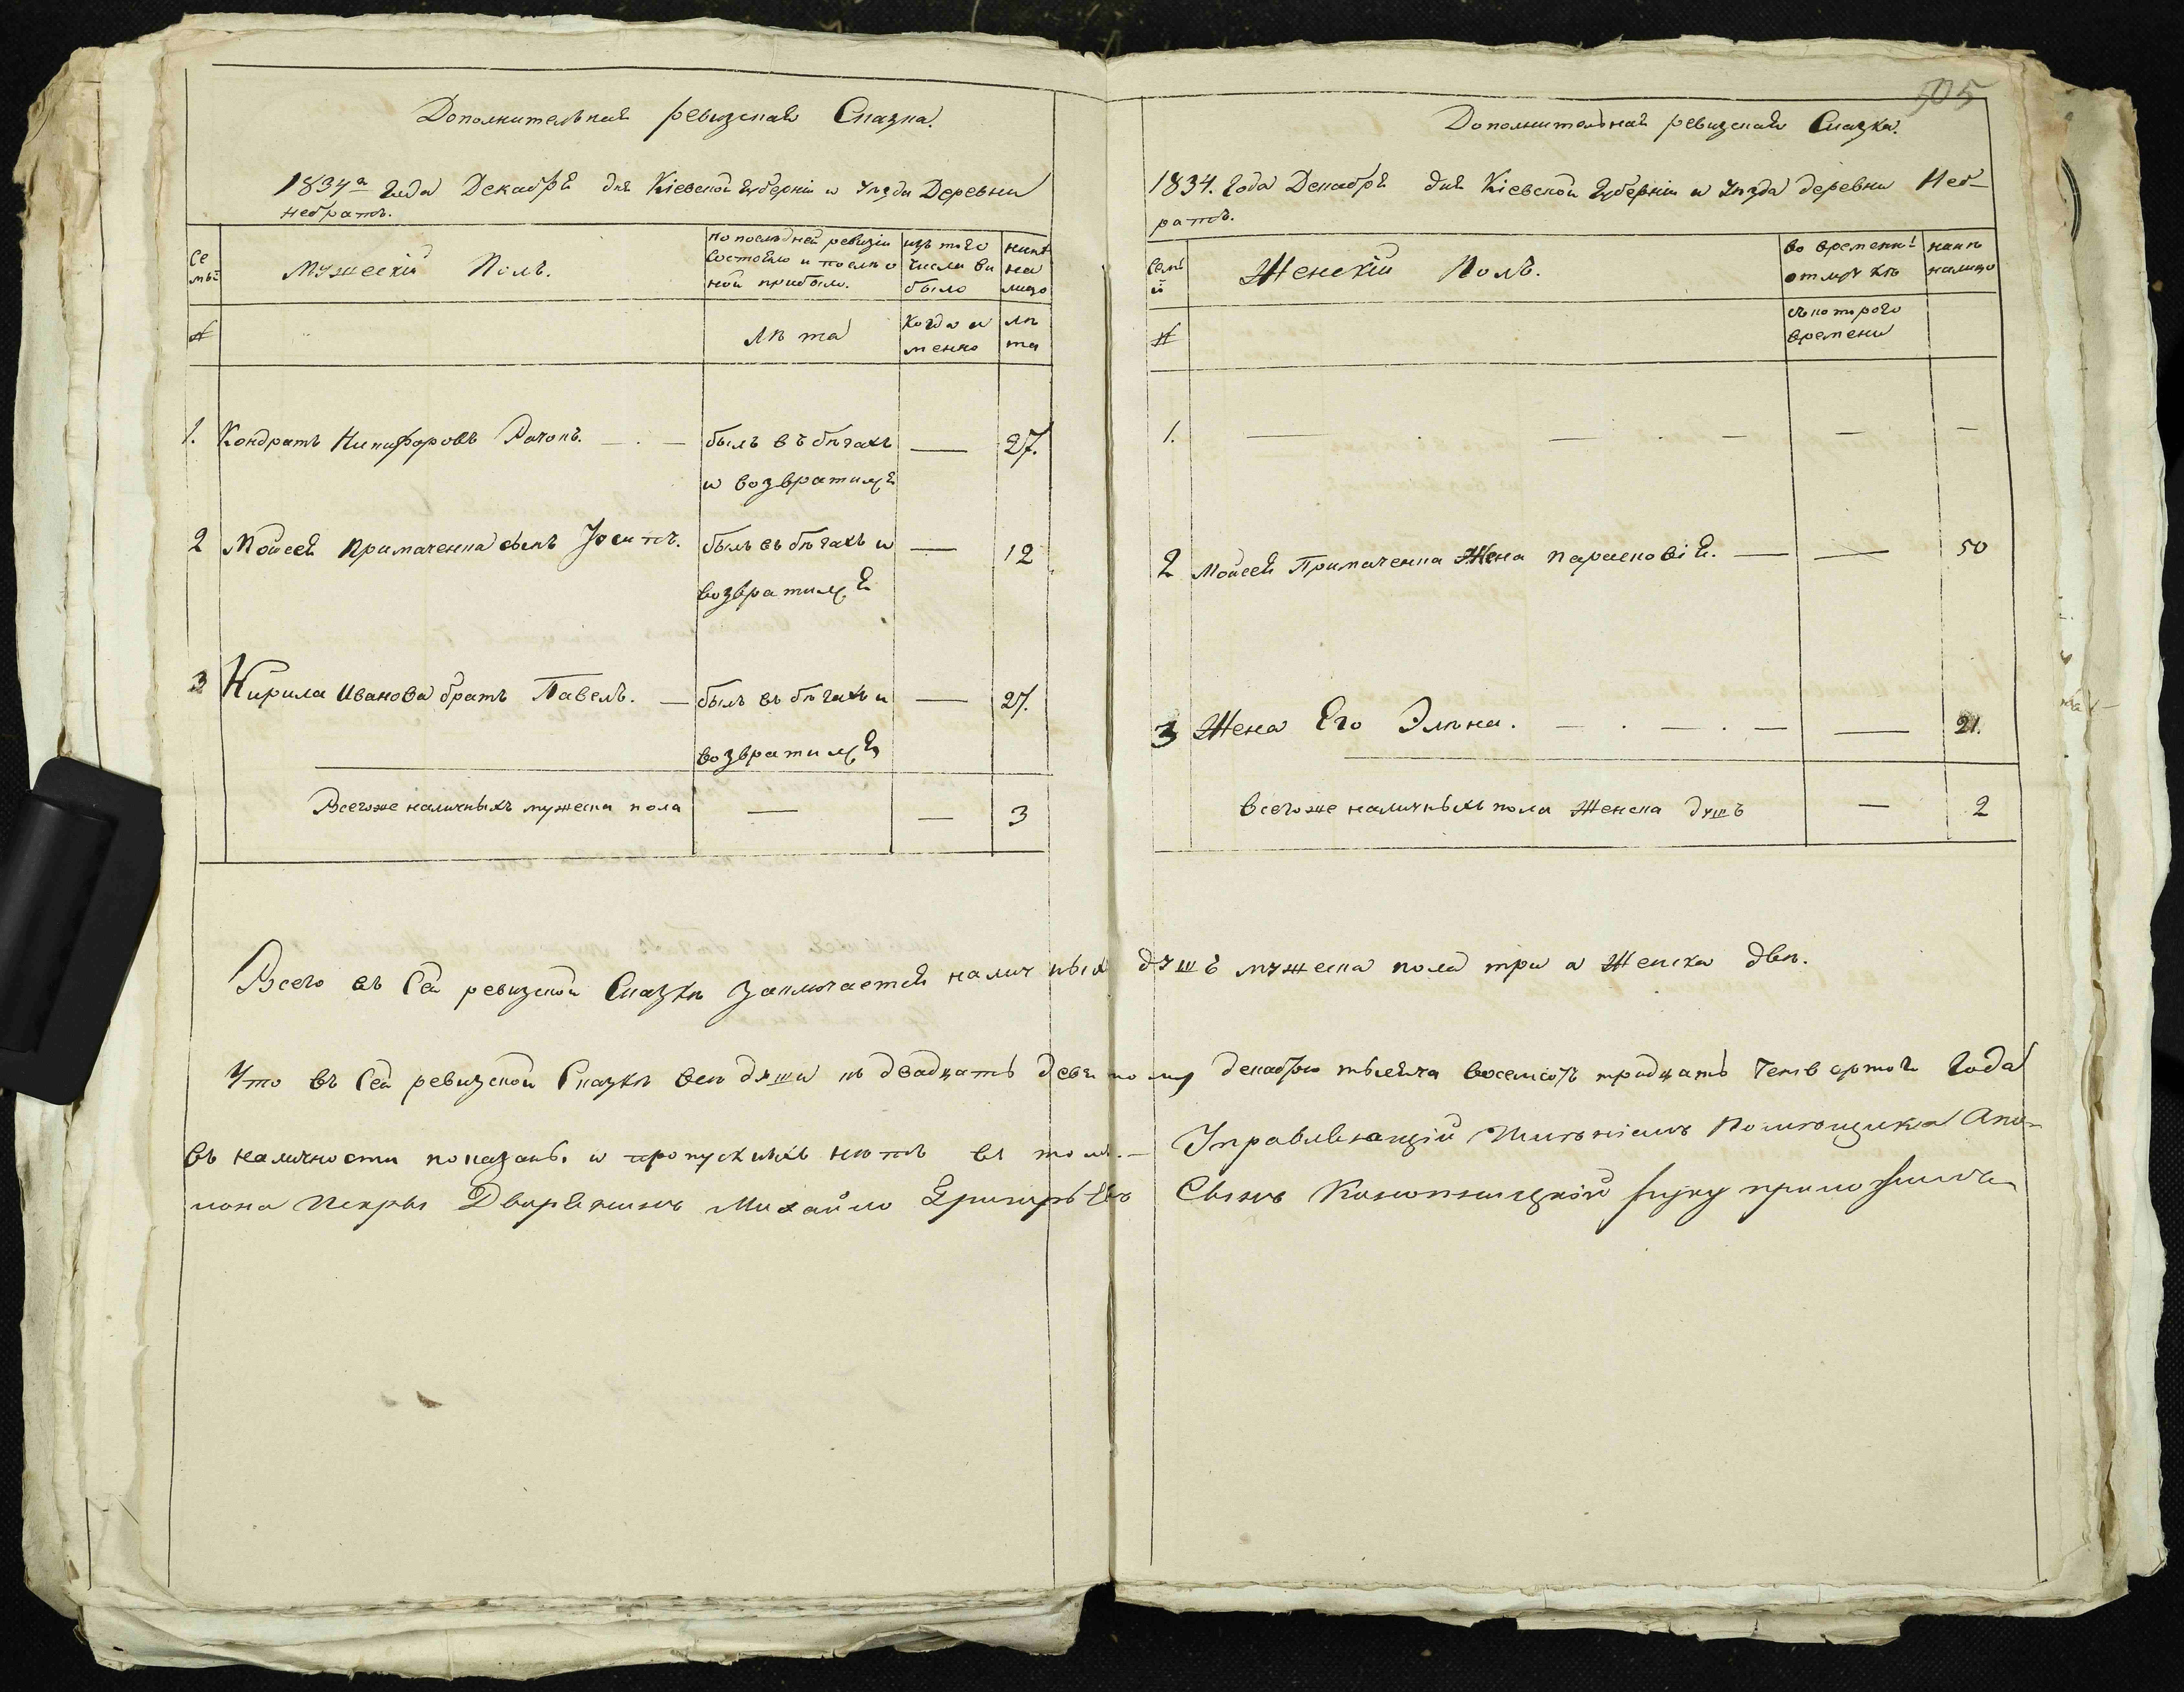 505
Дополнительная ревизская Сказка.
1834го Года Декабря дня Кіевской Губерніи и Уѣзда Деревни
Небратъ.
Се
мьи
Мужескій Полъ.
по последней ревизіи
состояло и после о
ной прибыло.
изъ того
числа вы
было
нинѣ
на
лицо
№
лѣта
Когда и
менно
лѣ
та
1. Кондратъ Никифоровъ — . — былъ въ бѣгахъ — 27.
и возвратился
2 Мойсея Примаченка сынъ Іосипъ. былъ въ бѣгахъ и — 12
возвратился
3 Кирила Иванова братъ Павелъ. — былъ въ бѣгахъ и — 27.
возвратился
Всего же наличныхъ мужеска пола — — 3
Дополнительная ревизская Сказка.
1834. Года Декабря дня Кіевской Губерніи и Уѣзда деревни Неб-
ратъ.
Семь
и
Женскій Полъ.
во временной
отлучкѣ
нынѣ
налицо
№
съ котораго
времени
1. — . — . — — —
2 Мойсея Примаченка Жена Парасковія. — — 50
3 Жена Его Элѣна. — . — . — — 21.
Всего же наличныхъ пола Женска душъ — 2
Всего въ Сей ревизской Сказкѣ заключается наличныхъ душъ мужеска пола три а Женска двѣ.
Что въ Сей ревизской Сказкѣ всѣ души къ двадцать девятому декабрю тысяча восемсотъ тридцать Четвертого Года
въ наличности показаны и пропускныхъ нѣтъ въ томъ. — Управляющій Имѣніемъ Помѣщика
Дворянинъ Михайло Григорьевъ Сынъ руку приложилъ